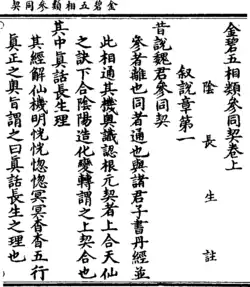 金碧五相類參同契
金碧五相類參同契卷上
陰長生註
叙說章第一
昔說魏君參同契
參者離也同者通也與諸君子書丹經並
此相通其機奧識認根元契者上合天仙
之訣下合陰陽造化變轉謂之上契合也
其中眞話長生理
其經解仙機明恍恍惚惚冥冥杳杳五行
眞正之奧旨謂之曰眞話長生之理也